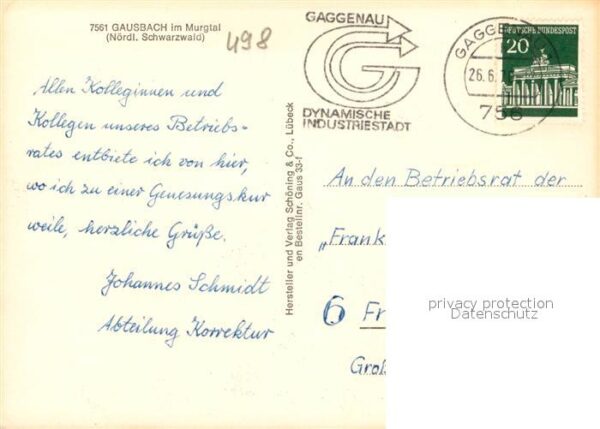 7561 GAUSBACH im Murgtal
(Nördl. Schwarzwald)
498
GAGGENAU
DYNAMISCHE
INDUSTRIESTADT
GAGGEN
26.6.7
756
DEUTSCHE BUNDESPOST
20
Allen Kolleginnen und
Kollegen unseres Betriebs-
rates entbiete ich von hier,
wo ich zu einer Genesungskur
weile, herzliche Grüße.
Johannes Schmidt
Abteilung Korrektur
Hersteller und Verlag Schöning & Co., Lübeck
en Bestellnr. Gaus 33-f
An den Betriebsrat der
„Frank
6 Fr
Groß
privacy protection
Datenschutz